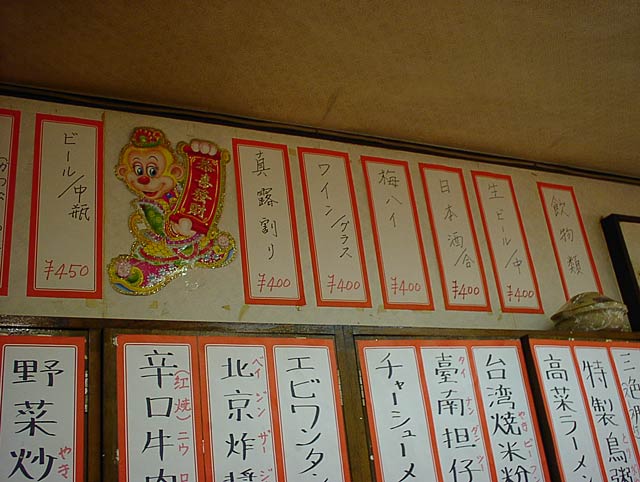 飲物類
生ビール/中 ¥400
日本酒/合 ¥400
梅ハイ ¥400
ワイン/グラス ¥400
真露割り ¥400
恭喜發財
ビール/中瓶 ¥450
特製鳥粥
高菜ラーメン
台湾焼米粉 やきビーフン
臺南担仔 タイナンタンツー
チャーシューメ
エビワンタン
北京炸醬 ペイジンザージ
辛口牛肉 (紅焼)ニウロ
野菜炒 やき